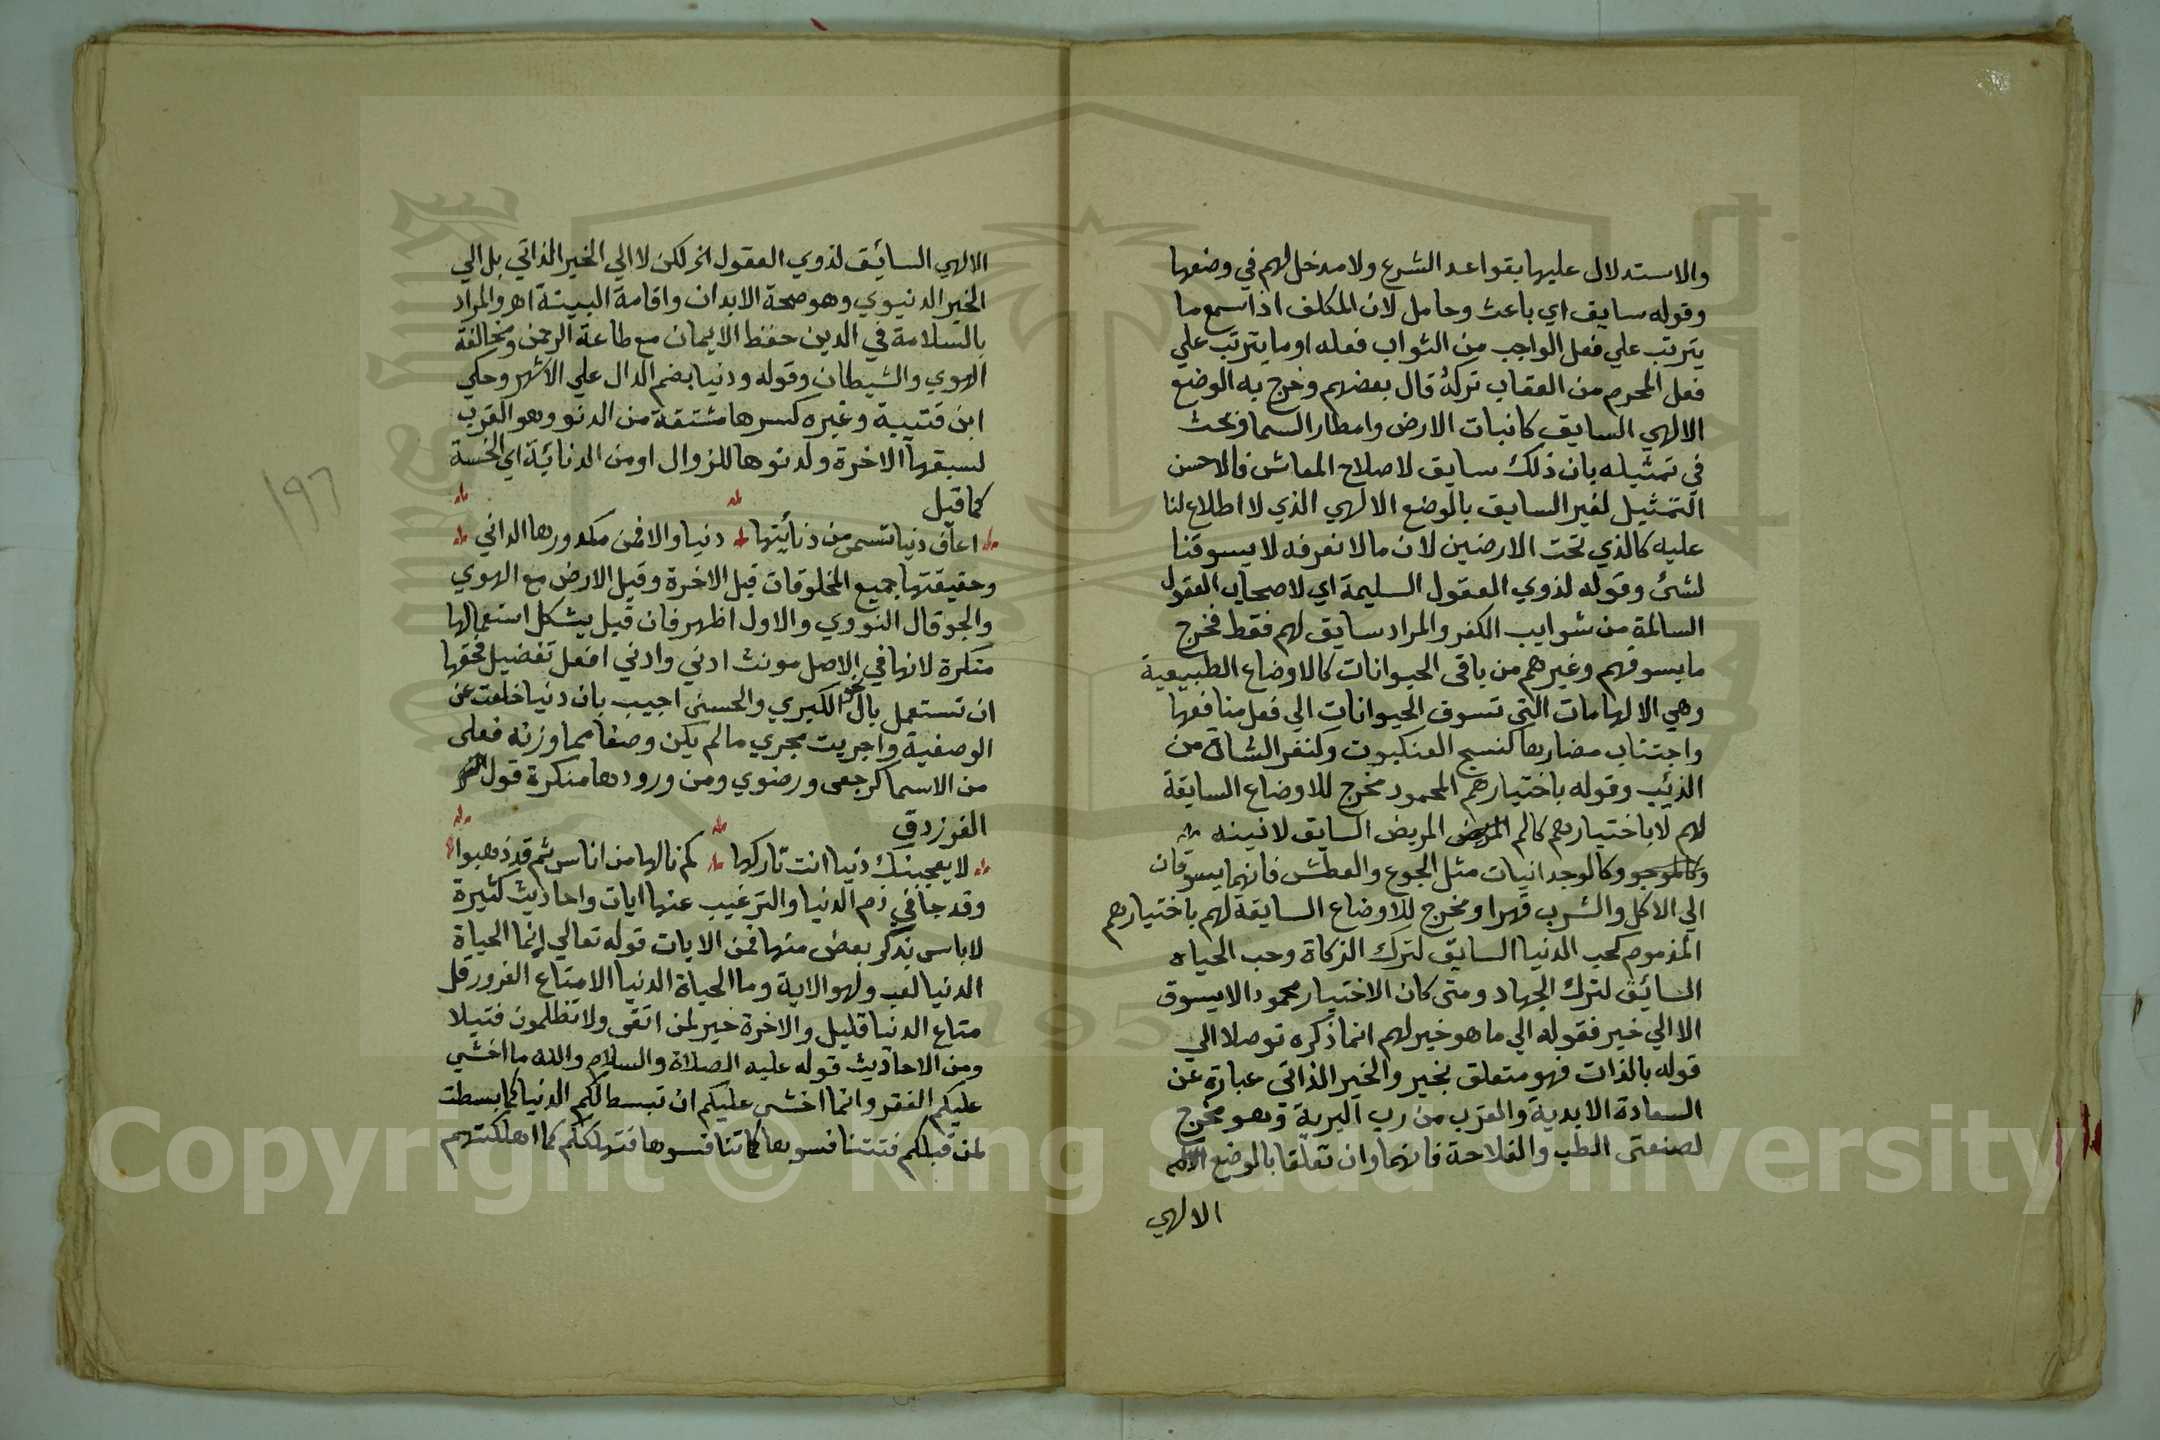 والاستدلال عليها بقواعد الشرع ولا مدخل لهم في وضعها
وقوله سايق اي باعث وحامل لان المكلف اذا سمع ما
يترتب علي فعل الواجب من الثواب فعله او ما يترتب علي
فعل المحرم من العقاب تركه قال بعضهم وخرج به الوضع
الالهي السايق كانبات الارض وامطار السما وبحث
في تمثيله بان ذلك سايق لاصلاح المعاش فالاحسن
التمثيل لغير السايق بالوضع الالهي الذي لا اطلاع لنا
عليه كالذي تحت الارضين لان ما لا نعرفه لا يسوقنا
لشئ وقوله لذوي العقول السليمة اي لاصحاب العقول
السالمة من شوايب الكفر والمراد سايق لهم فقط فخرج
ما يسوقهم وغيرهم من باقي الحيوانات كالاوضاع الطبيعية
وهي الالهامات التي تسوق الحيوانات الي فعل منافعها
واجتناب مضارها كنسج العنكبوت وكنفر الشاة من
الذئب وقوله باختيارهم المحمود مخرج للاوضاع السايقة
لهم لا باختيارهم كالم المريض السايق لانينه
وكالوجدانيات مثل الجوع والعطش فانهما يسوقان
الي الاكل والشرب قهرا ومخرج للاوضاع السايقة لهم باختيارهم
المذموم كحب الدنيا السايق لترك الزكاة وحب الحياه
السائق لترك الجهاد ومتي كان الاختيار محمودا لا يسوق
الا الي خير فقوله الي ما هو خير لهم انما ذكره توصلا الي
قوله بالذات فهو متعلق بخير والخير الذاتي عبارة عن
السعادة الابدية والقرب من رب البرية وهو مخرج
لصنعتي الطب والفلاحة فانهما وان تعلقا بالوضع
الالهي
الالهي السائق لذوي العقول الخ لكن لا الي الخير الذاتي بل الي
الخير الدنيوي وهو صحة الابدان واقامة البينة اهـ والمراد
بالسلامة في الدين حفظ الايمان مع طاعة الرحمن ومخالفة
الهوي والشيطان وقوله ودنيا بضم الدال علي الاشهر وحكي
ابن قتيبة وغيره كسرها مشتقة من الدنو وهو القرب
لسبقها الاخرة ولدنوها للزوال او من الدنائة اي الخسة
كما قيل
اعاف دنيا تسمى من دنائتها دنيا والا فمن مكدورها الداني
وحقيقتها جميع المخلوقات قبل الاخرة وقيل الارض مع الهوي
والجو قال النووي والاول اظهر فان قيل يشكل استعمالها
منكرة لانها في الاصل مونث ادني وادني افعل تفضيل فحقها
ان تستعمل بال نحو الكبري والحسني اجيب بان دنيا خلعت عن
الوصفية واجريت مجري ما لم يكن وصفا مما وزنه فعلى
من الاسما كرجعى ورضوي ومن ورودها منكرة قول
الفرزدق
لا يعجبنك دنيا انت تاركها كم نالها من اناس ثم قد ذهبوا
وقد جا في ذم الدنيا والترغيب عنها ايات واحاديث كثيرة
لا باس بذكر بعض منها فمن الايات قوله تعالي انما الحياة
الدنيا لعب ولهو الاية وما الحياة الدنيا الا متاع الغرور قل
متاع الدنيا قليل والاخرة خير لمن اتقى ولا تظلمون فتيلا
ومن الاحاديث قوله عليه الصلاة والسلام والله ما اخشي
عليكم الفقر وانما اخشي عليكم ان تبسط لكم الدنيا كما بسطت
لمن قبلكم فتتنافسوها كما تنافسوها فتهلككم كما اهلكتهم
١٩٦
Copyright © King Saud University
1957